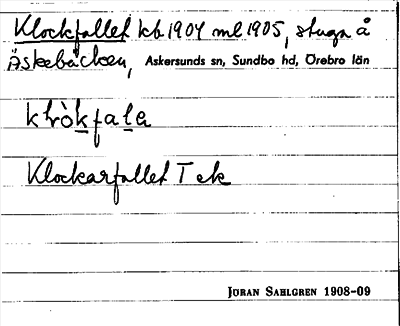 Klockfallet kb 1904 ml 1905, stuga å
Äskebäcken, Askersunds sn, Sundbo hd, Örebro län
klòkfala
Klockarfallet T ek
JÖRAN SAHLGREN 1908-09